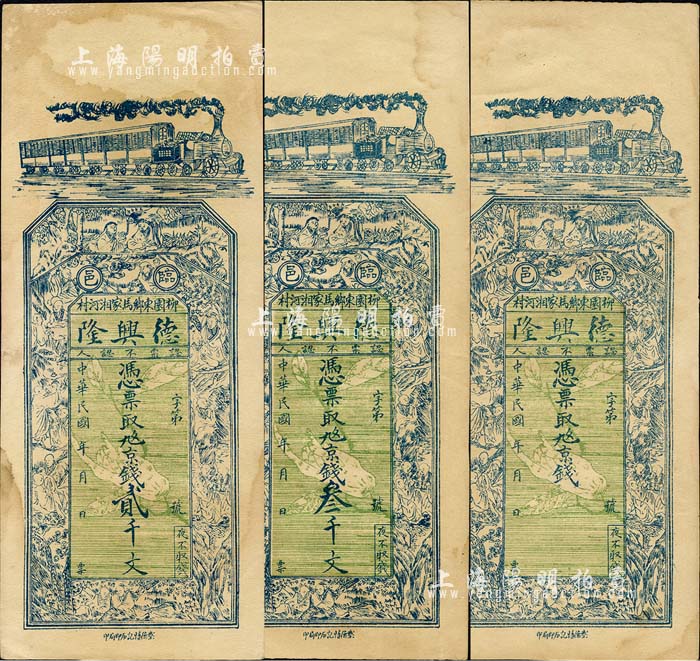 上海陽明拍賣
www.yangmingauction.com
臨邑
柳園東鄉馬家湘河村
德興隆
認票不認人
字第
號
憑票取九八京錢貳千文
中華民國 年 月 日
夜不收發
票
臨邑
柳園東鄉馬家湘河村
德興隆
認票不認人
字第
號
憑票取九八京錢叁千文
中華民國 年 月 日
夜不收發
票
上海陽明拍賣
臨邑
柳園東鄉馬家湘河村
德興隆
認票不認人
字第
號
憑票取九八京錢
中華民國 年 月 日
夜不收發
票
上海陽明拍賣
www.yangmingauction.com